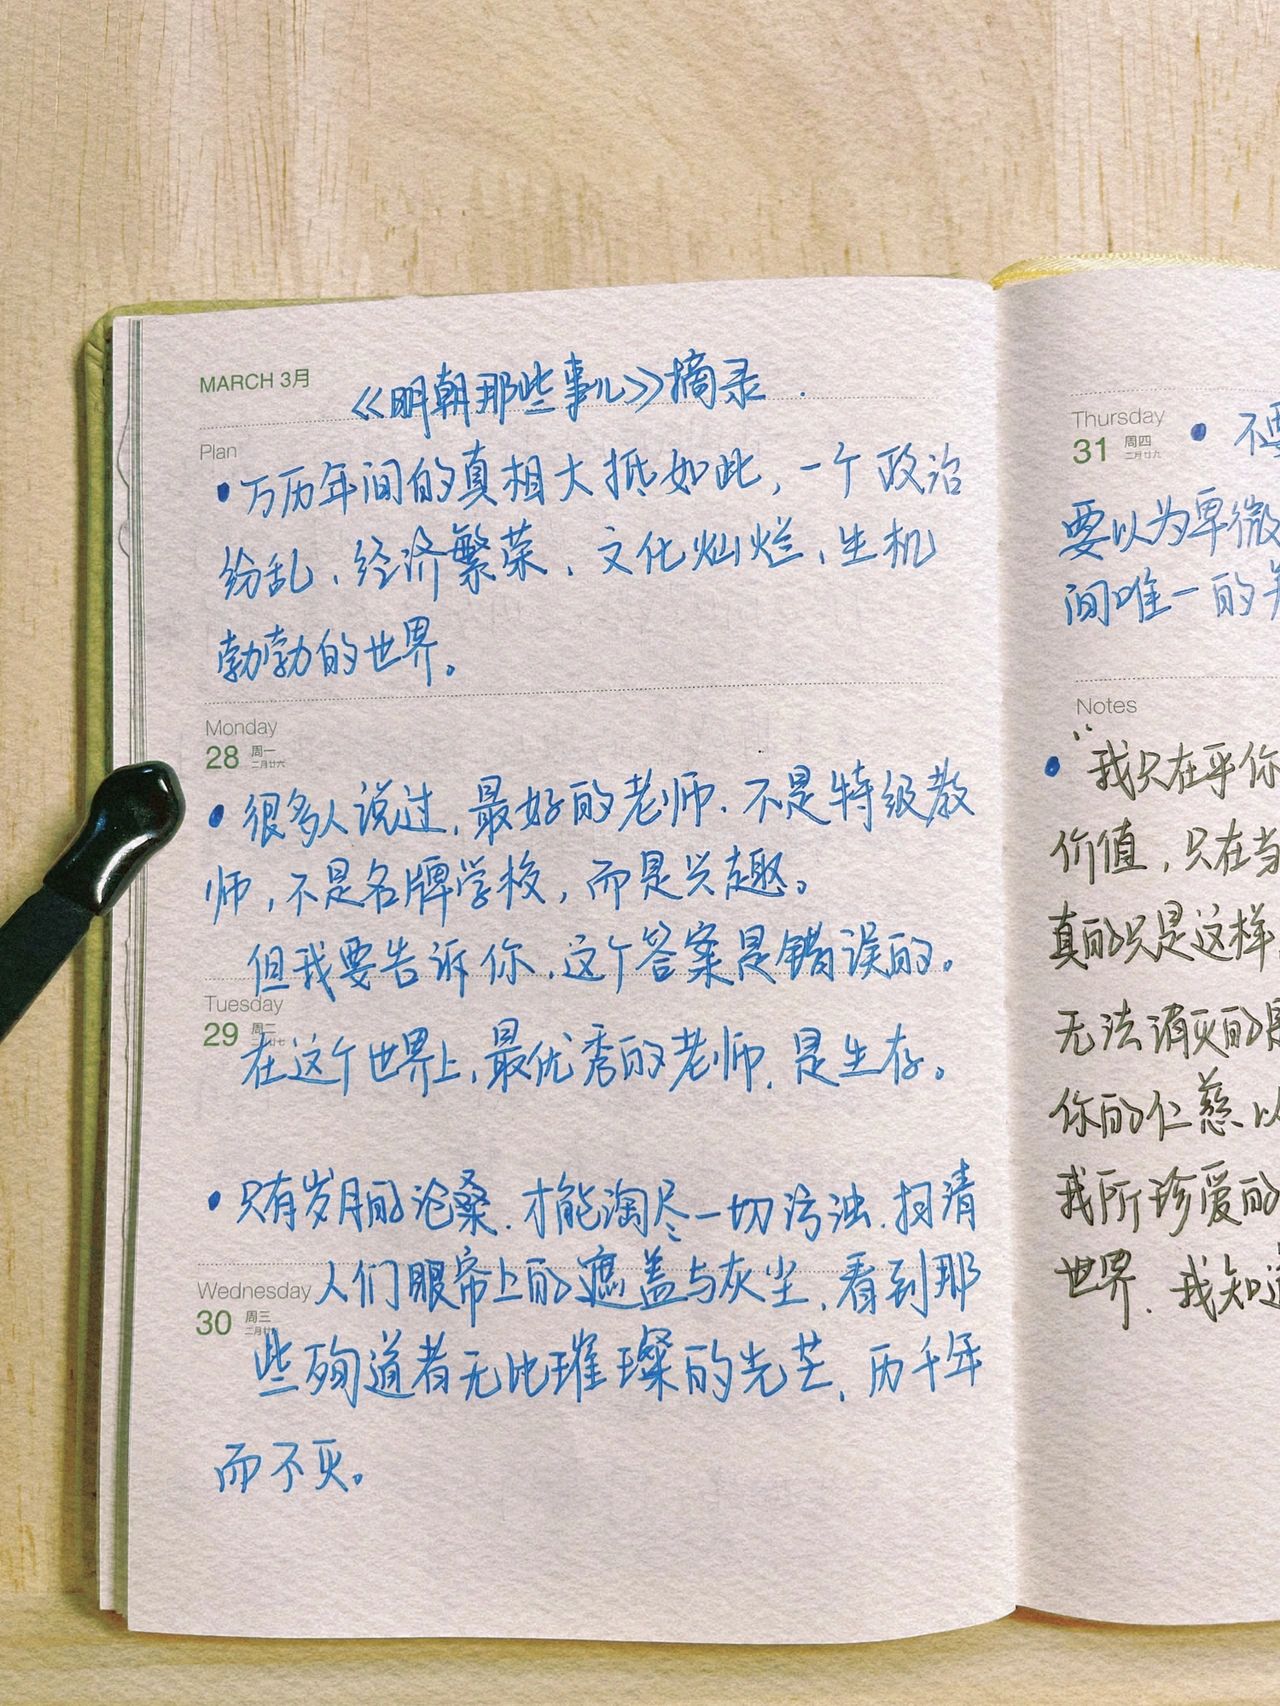 MARCH 3月
《明朝那些事儿》摘录.
Plan
•万历年间的真相大抵如此，一个政治
纷乱、经济繁荣、文化灿烂、生机
勃勃的世界。
Monday
28 周一
二月廿六
•很多人说过，最好的老师、不是特级教
师，不是名牌学校，而是兴趣。
但我要告诉你、这个答案是错误的。
Tuesday
29 周二
在这个世界上，最优秀的老师，是生存。
•只有岁月的沧桑、才能淘尽一切污浊、扫清
Wednesday 人们服帘上的遮盖与灰尘，看到那
30 周三
些殉道者无比璀璨的光芒、历千年
而不灭。
Thursday
31 周四
二月廿九
•不要
要以为卑微
间唯一的
Notes
•“我只在乎你
价值，只在当
真的只是这样
无法消灭的是
你的仁慈以
我所珍爱的
世界、我知道